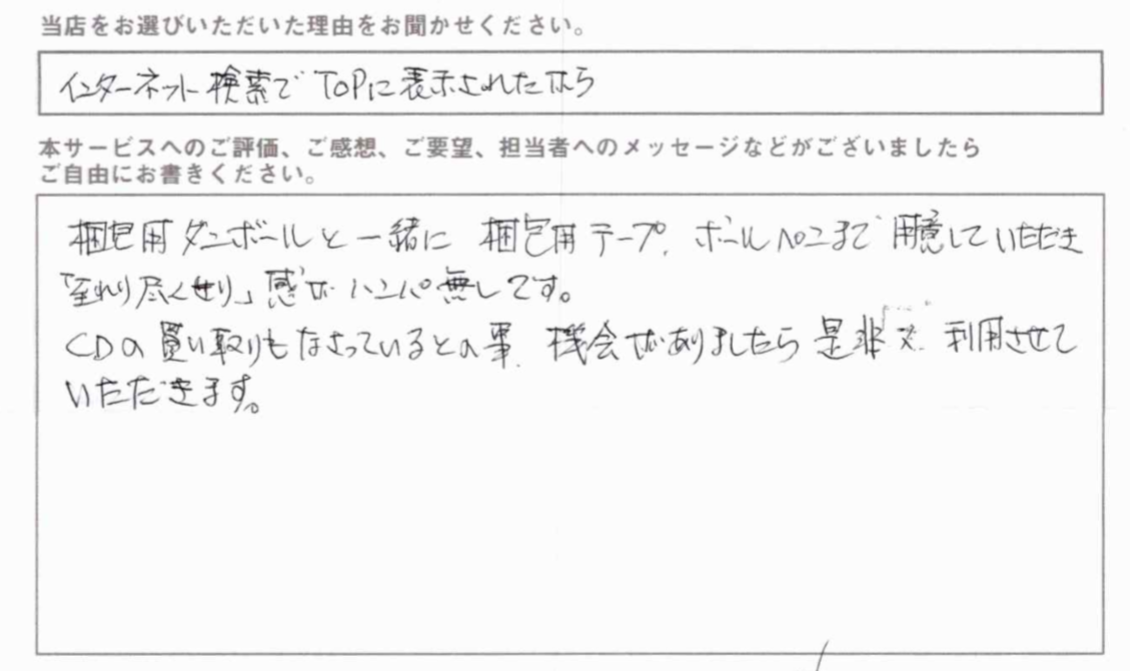 当店をお選びいただいた理由をお聞かせください。
インターネット検索でTOPに表示されたから
本サービスへのご評価、ご感想、ご要望、担当者へのメッセージなどがございましたら
ご自由にお書きください。
梱包用ダンボールと一緒に梱包用テープ、ボールペンまで用意していただき
「至れり尽くせり」感がハンパ無しです。
CDの買い取りもなさっているとの事、機会がありましたら是非又利用させて
いただきます。